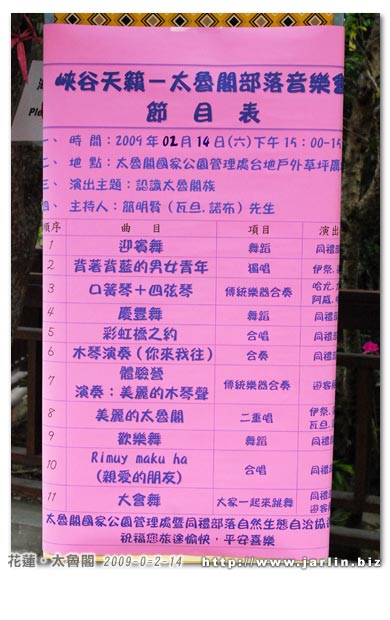 峽谷天籟－太魯閣部落音樂會
節 目 表
一、 時 間：2009 年 02 月 14 日(六)下午 15：00-15
二、 地 點：太魯閣國家公園管理處台地戶外草坪廣
三、 演出主題：認識太魯閣族
四、 主持人：簡明賢（瓦旦.諾布）先生
順序 曲 目 項目 演出
1 迎賓舞 舞蹈 同禮部
2 背著背藍的男女青年 獨唱 伊祭.
3 口簧琴＋四弦琴 傳統樂器合奏 哈尤.
阿威.
4 慶豐舞 舞蹈 同禮部
5 彩虹橋之約 合唱 同禮部
6 木琴演奏（你來我往） 合奏 同禮部
7 體驗營
演奏：美麗的木琴聲 傳統樂器合奏 遊客
8 美麗的太魯閣 二重唱 伊祭.
瓦旦.
9 歡樂舞 舞蹈 同禮部
10 Rimuy maku ha
(親愛的朋友) 合唱 同禮部
11 大會舞 大家一起來跳舞 同禮部
遊客
太魯閣國家公園管理處暨同禮部落自然生態自治協
祝福您旅途愉快，平安喜樂
花蓮・太魯閣 2009-0-2-14 http://www.jarlin.biz